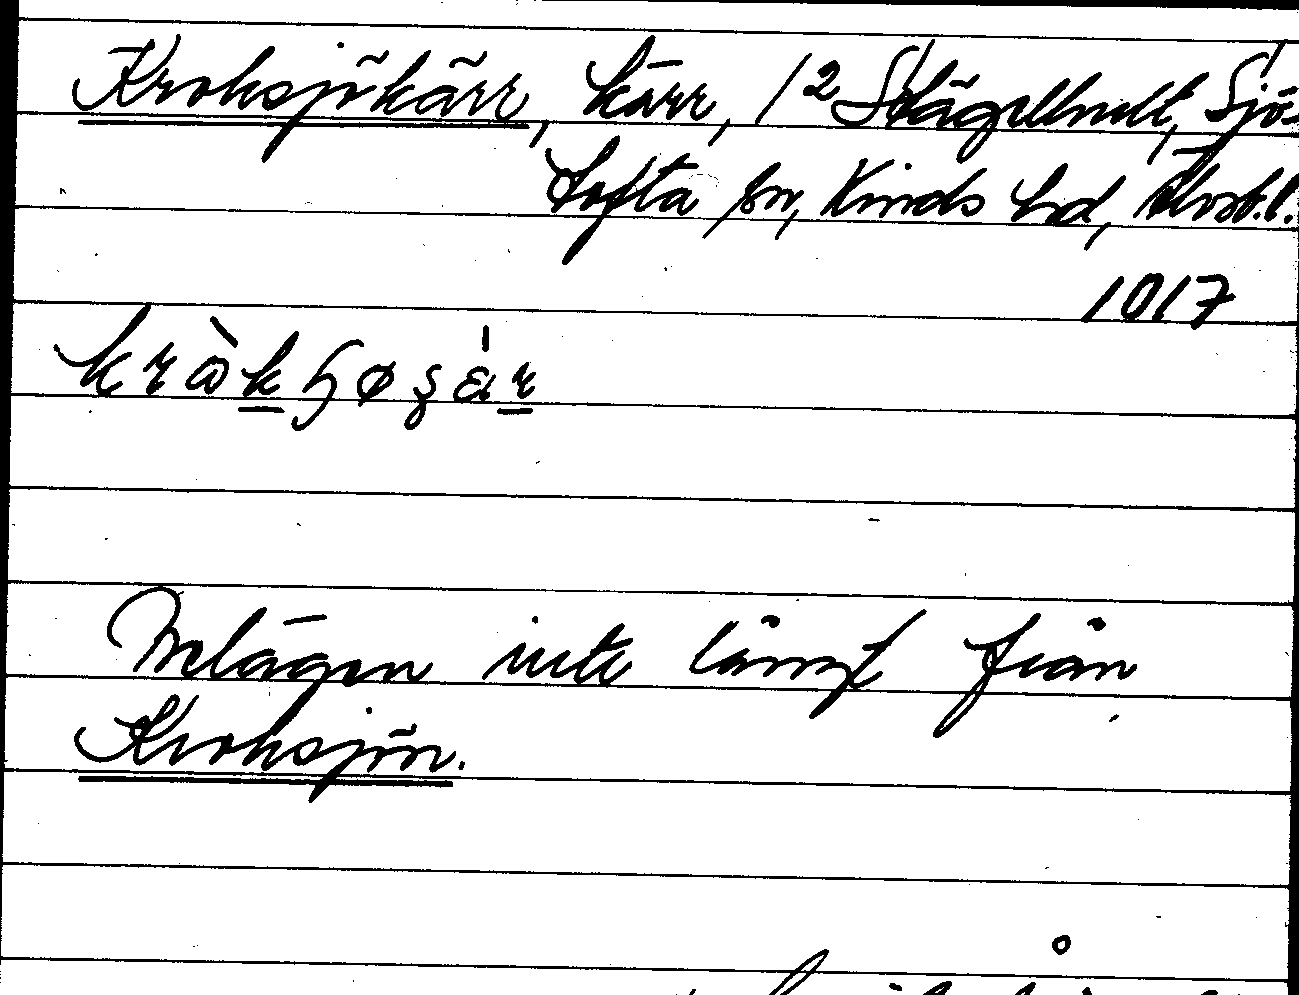 Kroksjökärr, kärr, 1² Stägelhult, Sjö-
tofta sn, Kinds hd, Älvsb.l.
1017
kràkɧøʂár
Belägen inte långt från
Kroksjön.